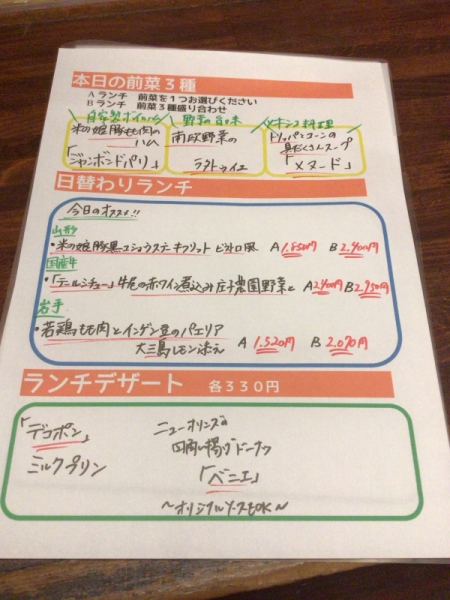 本日の前菜３種
Ａランチ 前菜を１つお選びください
Ｂランチ 前菜３種盛り合わせ
自家製ボイルハム
米の娘豚もも肉の
ハム
「ジャンボンドパリ」
野菜の旨味
南欧野菜の
ラタトゥイユ
メキシコ料理
トリッパとコーンの
具だくさんスープ
「メヌード」
日替わりランチ
今日のオススメ!!
山形
・米の娘豚黒コショウステーキフリット ビストロ風 A 1.850円 B 2.400円
国産牛
「テールシチュー」牛尾の赤ワイン煮込み 庄子農園野菜と A 2400円 B 2.950円
岩手
・若鶏もも肉とインゲン豆のパエリア
大三島レモン添え A 1.520円 B 2.070円
ランチデザート 各３３０円
「デコポン」
ミルクプリン
ニューオリンズの
四角い揚げドーナツ
「ベニエ」
～オリジナルソースもOK～